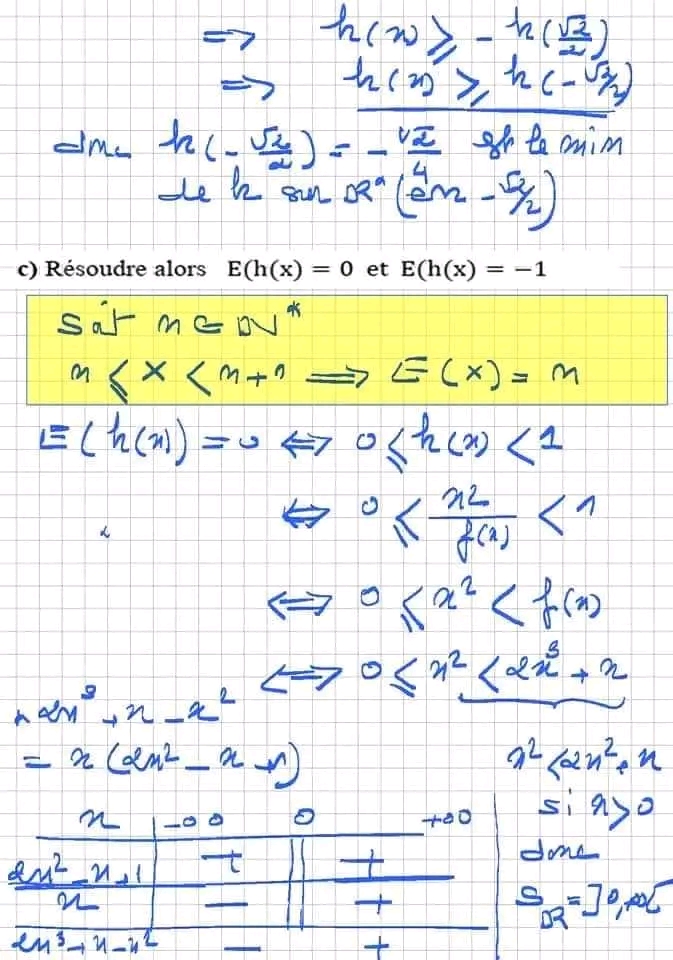 => h(x) ≥ - h(√2/2)
=> h(x) ≥ h(-√2/2)
donc h(-√2/2) = -√2/4 est le min
de h sur IR* (en -√2/2)
c) Résoudre alors E(h(x) = 0 et E(h(x) = −1
Soit n ∈ IN*
n ≤ X < n+1 => E(X) = n
E(h(x)) = 0 <=> 0 ≤ h(x) < 1
<=> 0 ≤ x²/f(x) < 1
<=> 0 ≤ x² < f(x)
<=> 0 ≤ x² < 2x³ + x
* 2x³ + x - x²
= x(2x² - x + 1)
x² < 2x² + x
si x > 0
donc
S_IR = ]0, +∞[
x -∞ 0 +∞
2x² - x + 1 + +
x - +
2x³ + x - x² - +